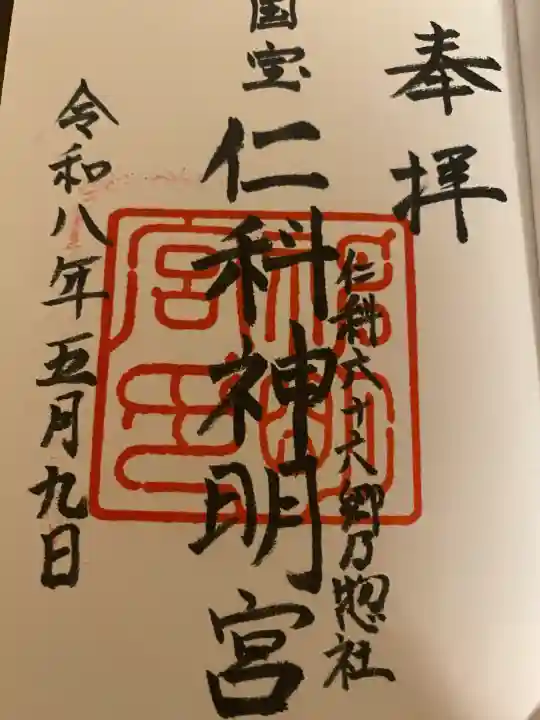 奉拝
仁科六十六郷乃惣社
国宝 仁科神明宮
令和八年五月九日